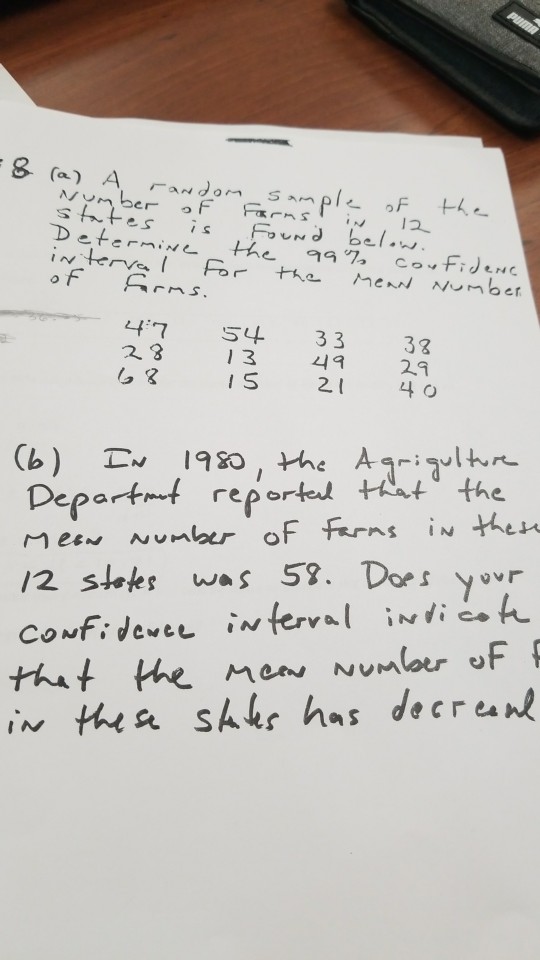 PUMA
8 (a) A random sample of the
Number of Farms in 12
states is Found below.
Determine the 99% confidenc
interval For the mean Number
of Farms.
47 54 33 38
28 13 49 29
68 15 21 40
(b) In 1980, the Agrigulture
Departmt reported that the
mean number of farms in these
12 states was 58. Does your
confidence interval indicate
that the mean number of f
in these states has decreased